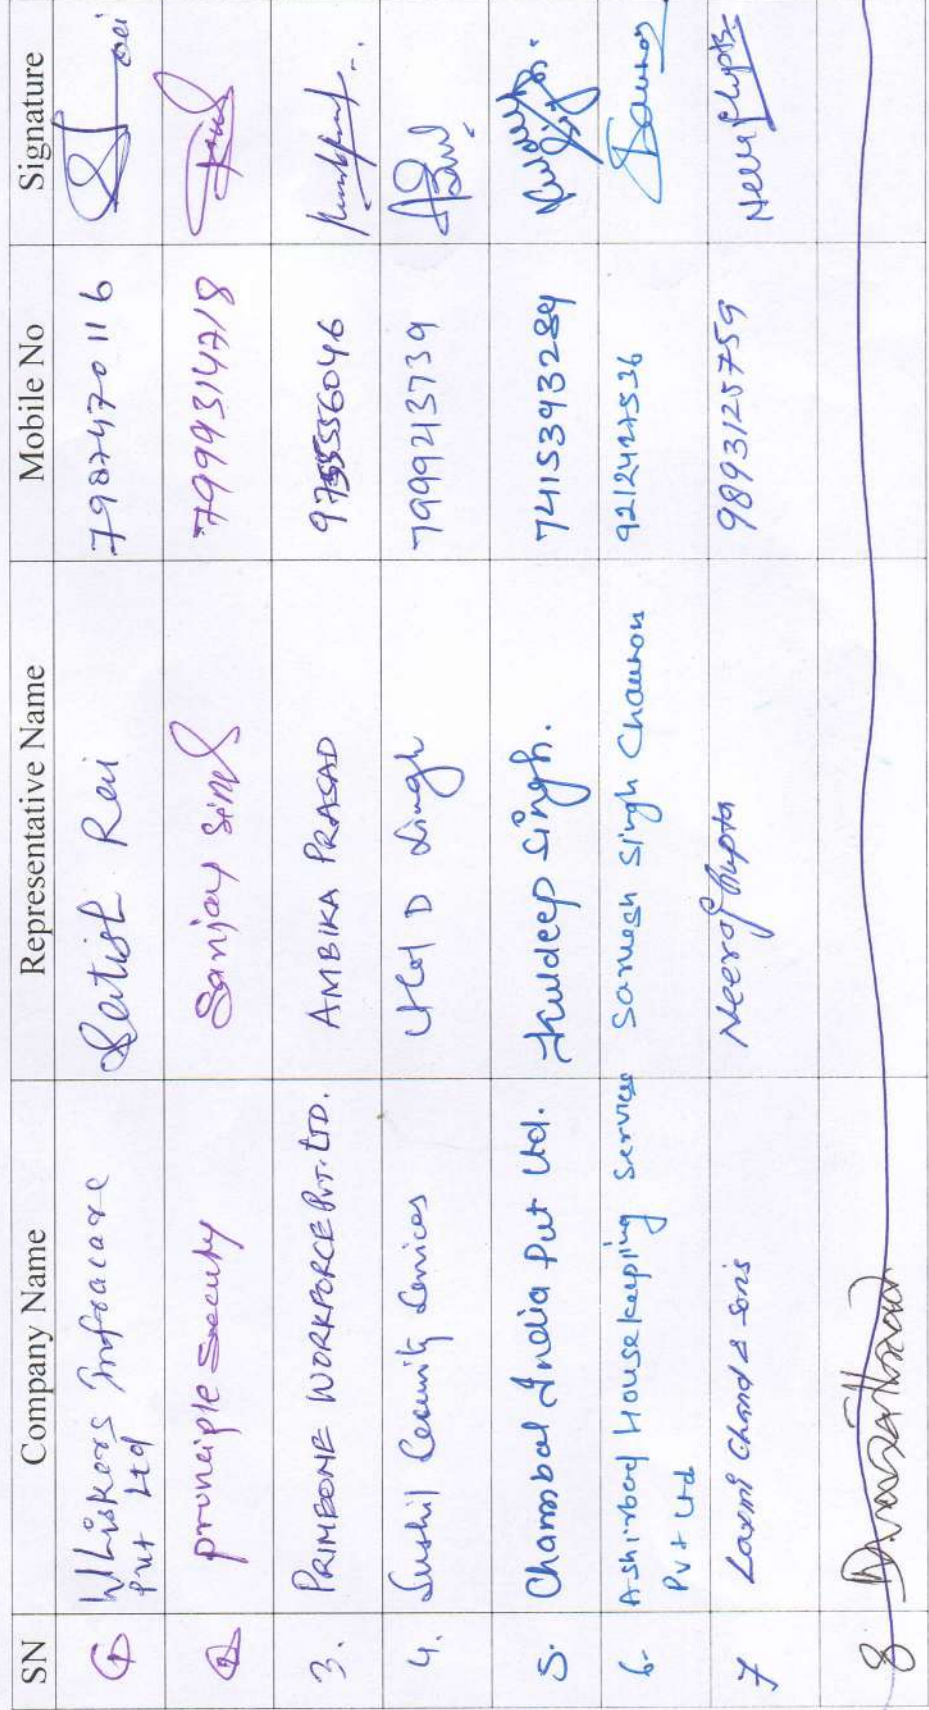 SN Company Name Representative Name Mobile No Signature
1 Whiskers Infracare Satish Rai 7987470116
Pvt Ltd
2 principle Security Sanjay Singh 7999314718
3. PRIMEONE WORKFORCE PVT. LTD. AMBIKA PRASAD 9755556046
4. Sushil Security Services D Singh 7999213739
5. Chambal India Pvt Ltd. Kuldeep Singh. 7415393289 Kuldeep Singh
6. Ashirbad Housekeeping Services Sarvesh Singh Chauhan 9212427536 Sauhan
Pvt Ltd
7 Laxmi Chand & Sons Neeraj Gupta 9893125759 Neeraj Gupta
8